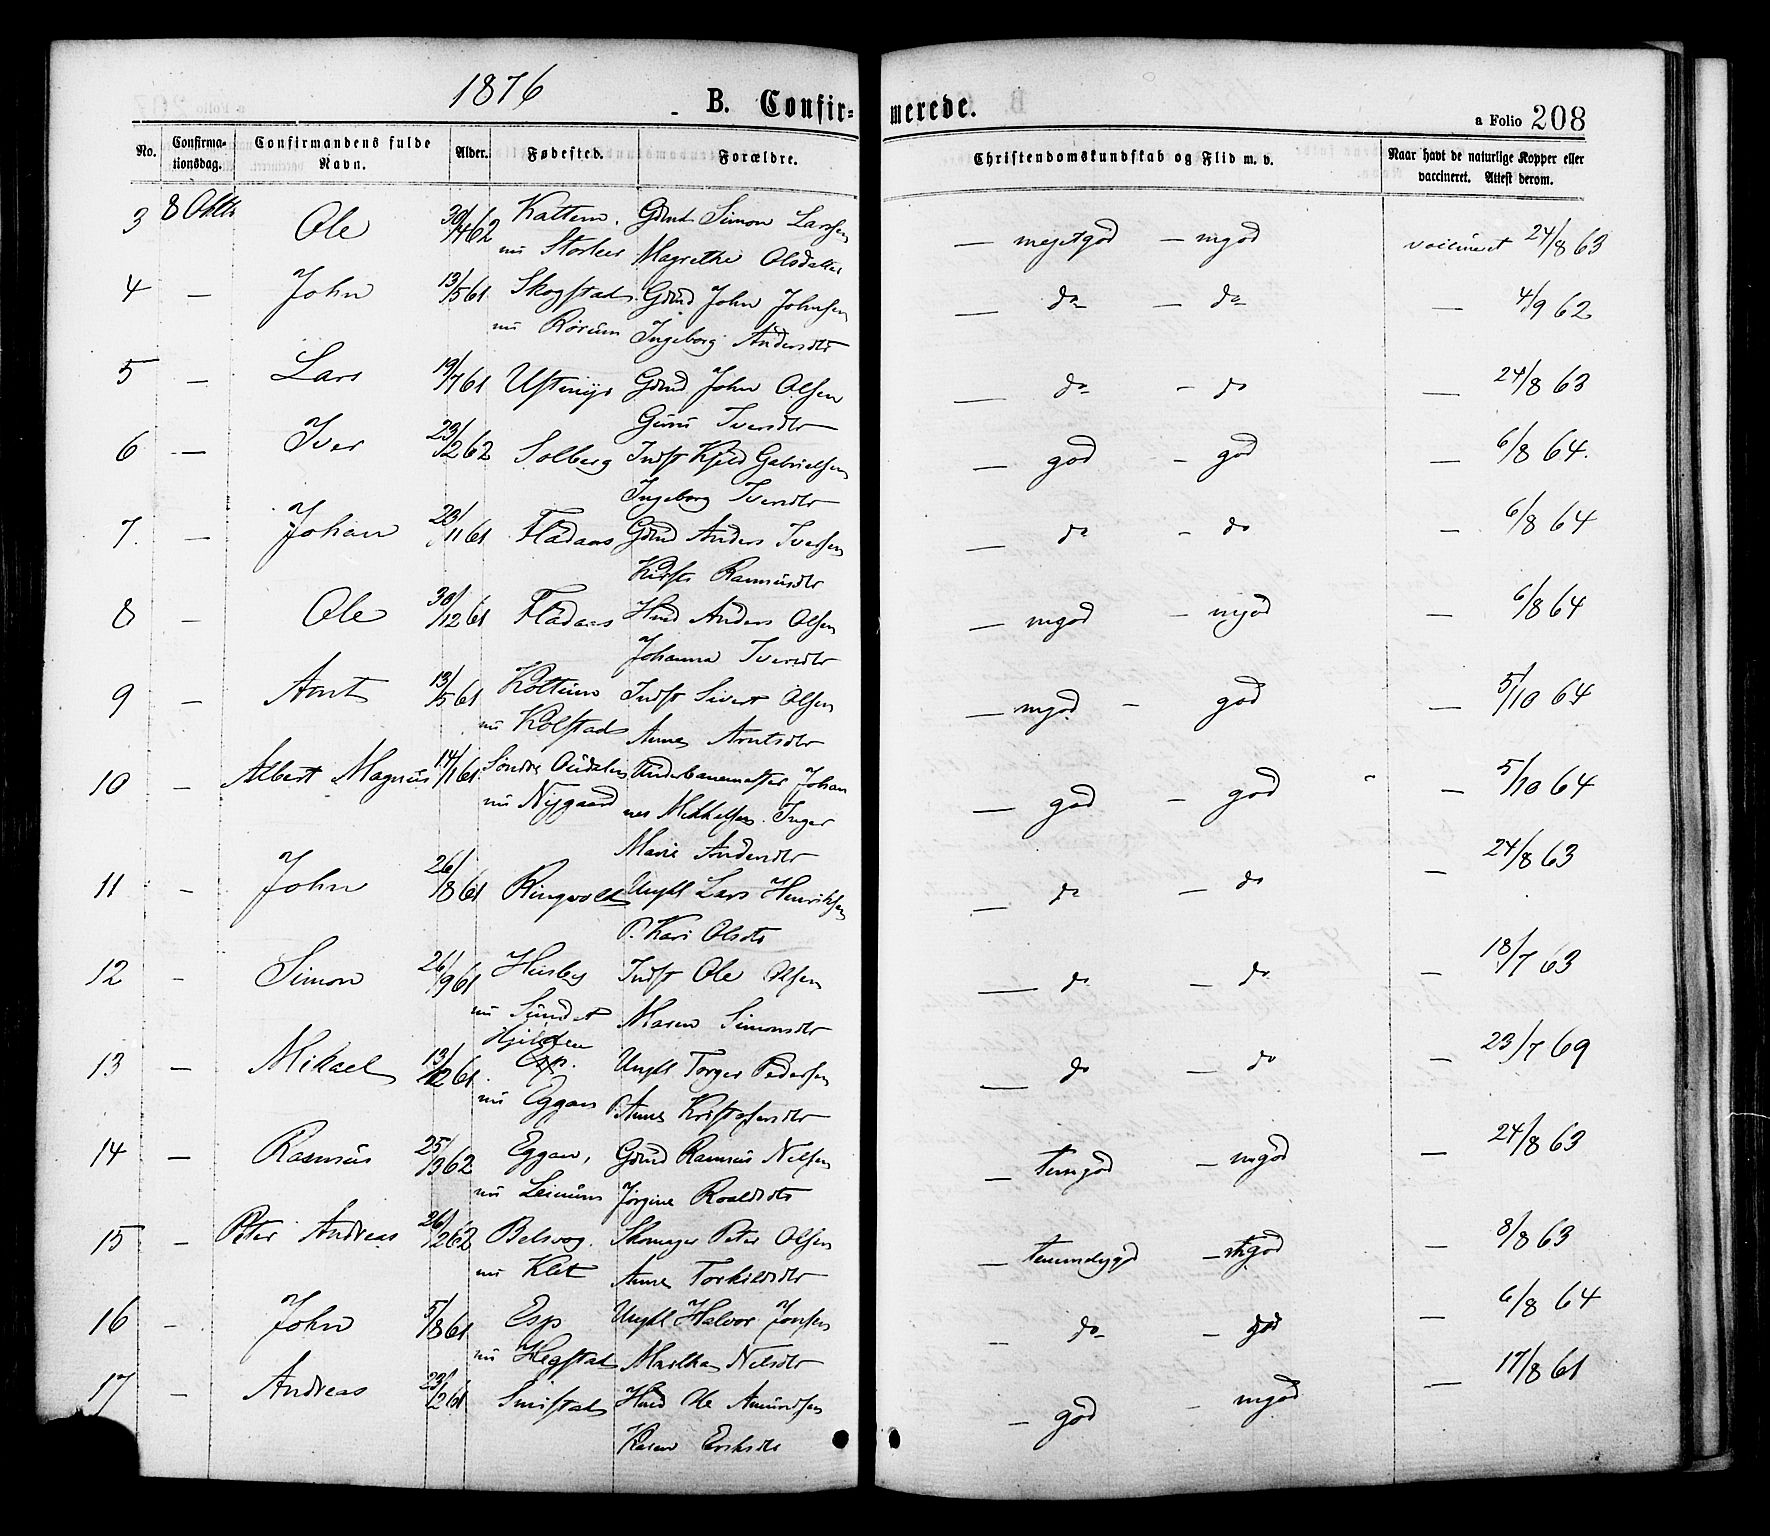 1876
B. Confir= merede.
a Folio 208
No. Confirma-tionsdag. Confirmandens fulde Navn. Alder. Fødested. Forældre. Christendomskundskab og Flid m. v. Naar havt de naturlige Kopper eller vaccineret. Attest derom.
3 8 Oktb Ole 30/4 62 Kattem. Gdmd Simon Larssen — megetgod — mgod vaccineret 24/8 63
nu Storler Magrethe Olsdatter
4 — John 13/5 61 Skogstad Gdmd John Johnsen — do — do — 4/9 62
nu Rørum Ingeborg Andersdtr
5 — Lars 19/7 61 Ustenye Gdmd John Olsen — do — do — 24/8 63
Guru Iversdtr
6 — Iver 23/2 62 Solberg Indst Kjeld Gabrielsen — god — god — 6/8 64.
Ingeborg Iversdtr
7. — Johan 23/11 61 Flådaas Gdmd Anders Iversen — do — do — 6/8 64
Kirsti Rasmusdtr
8 — Ole 30/12 61 Flådaas Hmd Anders Olsen — mgod — mgod — 6/8 64
Johanna Iversdtr
9 — Arnt 13/5 61 Koltum Indst Sivert Olsen — mgod — god — 5/10 64
nu Kolstad Anne Arntsdtr
10 — Albert Magnus 14/1 61 Søndre Oudalen Underbanemester Johan — god — god — 5/10 64
nu Nygaard nes Mikkelsen. Inger
Marie Andersdtr
11 — John 26/8 61 Ringvold Ungkl Lars Henriksen — do — do — 24/8 63
P. Kari Olsdtr
12 — Simon 26/9 61 Husby Indst Ole Olsen — do — do — 18/7 63
nu Sundet Maren Simonsdtr
Hjilden
13 — Mikael 13/12 61 Esp. Ungkl Torger Pedersen — do — do — 23/7 69
nu Eggan P. Anne Kristofersdtr
14 — Rasmus 25/3 62 Eggan, Gdmd Rasmus Nilsen — temgod — mgod — 24/8 63
nu Leinum Jørgine Roaldsdtr
15 — Peter Andreas 26/2 62 Belsvog. Skomager Peter Olsen — temmeligod — mgod — 8/8 63
nu Klet Anne Torkildsdtr
16 — John 5/8 61 Esp Ungkl Halvor Jonsen — do — god — 6/8 64
nu Hegstad Martha Nilsdtr
17 — Andreas 23/2 61 Smistad Hmd Ole Amundsen — god — mgod — 17/8 61
Karen Eriksdtr